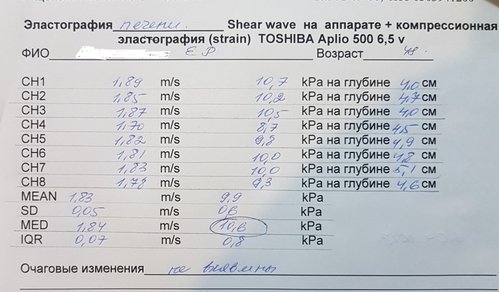 Эластография печени. Shear wave на аппарате + компрессионная
эластография (strain) TOSHIBA Aplio 500 6,5 v
ФИО Е Р Возраст 48
CH1 1,89 m/s 10,7 kPa на глубине 4,0 см
CH2 1,85 m/s 10,2 kPa на глубине 4,7 см
CH3 1,87 m/s 10,5 kPa на глубине 4,0 см
CH4 1,70 m/s 8,7 kPa на глубине 4,5 см
CH5 1,82 m/s 9,8 kPa на глубине 4,9 см
CH6 1,81 m/s 10,0 kPa на глубине 4,8 см
CH7 1,83 m/s 10,0 kPa на глубине 5,1 см
CH8 1,78 m/s 9,3 kPa на глубине 4,6 см
MEAN 1,83 m/s 9,9 kPa
SD 0,05 m/s 0,6 kPa
MED 1,84 m/s 10,6 kPa
IQR 0,07 m/s 0,8 kPa
Очаговые изменения не выявлены